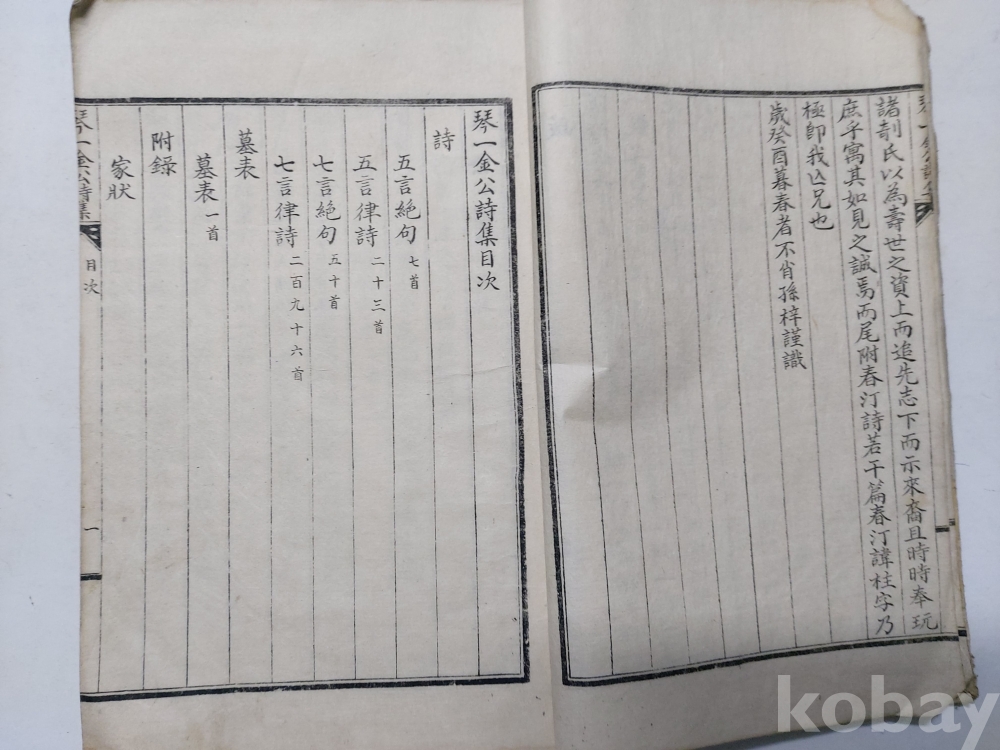 諸剞氏以為壽世之資上而追先志下而示來裔且時時奉玩
庶乎寓其如見之誠焉而尾附春汀詩若干篇春汀諱柱字乃
極即我亡兄也
歲癸酉暮春者不肖孫梓謹識
琴一金公詩集目次
詩
五言絕句 七首
五言律詩 二十三首
七言絕句 五十首
七言律詩 二百九十六首
墓表
墓表 一首
附錄
家狀
琴一金公詩集
目次
一
kobay